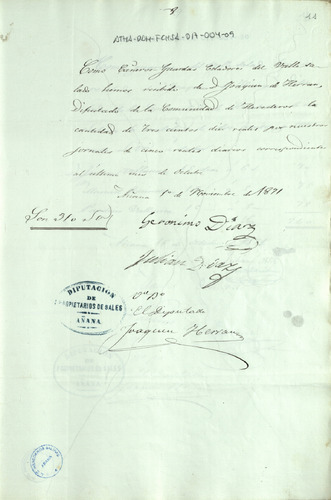 11
ATHA-DAH-FCHSA-D17-004-09
Como Cañeros Guardas Celadores del Valle Sa
lado hemos recibido de D. Joaquin de Herran,
Diputado de la Comunidad de Herederos la
cantidad de Tres cientos diez reales por nuestros
jornales de cinco reales diarios correspondiente
al ultimo mes de Octubre
Añana 1º de Noviembre de 1871
Son 310 rs
Geronimo Diaz
Julian Diaz
Vº Bº
El Diputado
Joaquin Herran
DIPUTACION
DE
PROPIETARIOS DE SALES
AÑANA